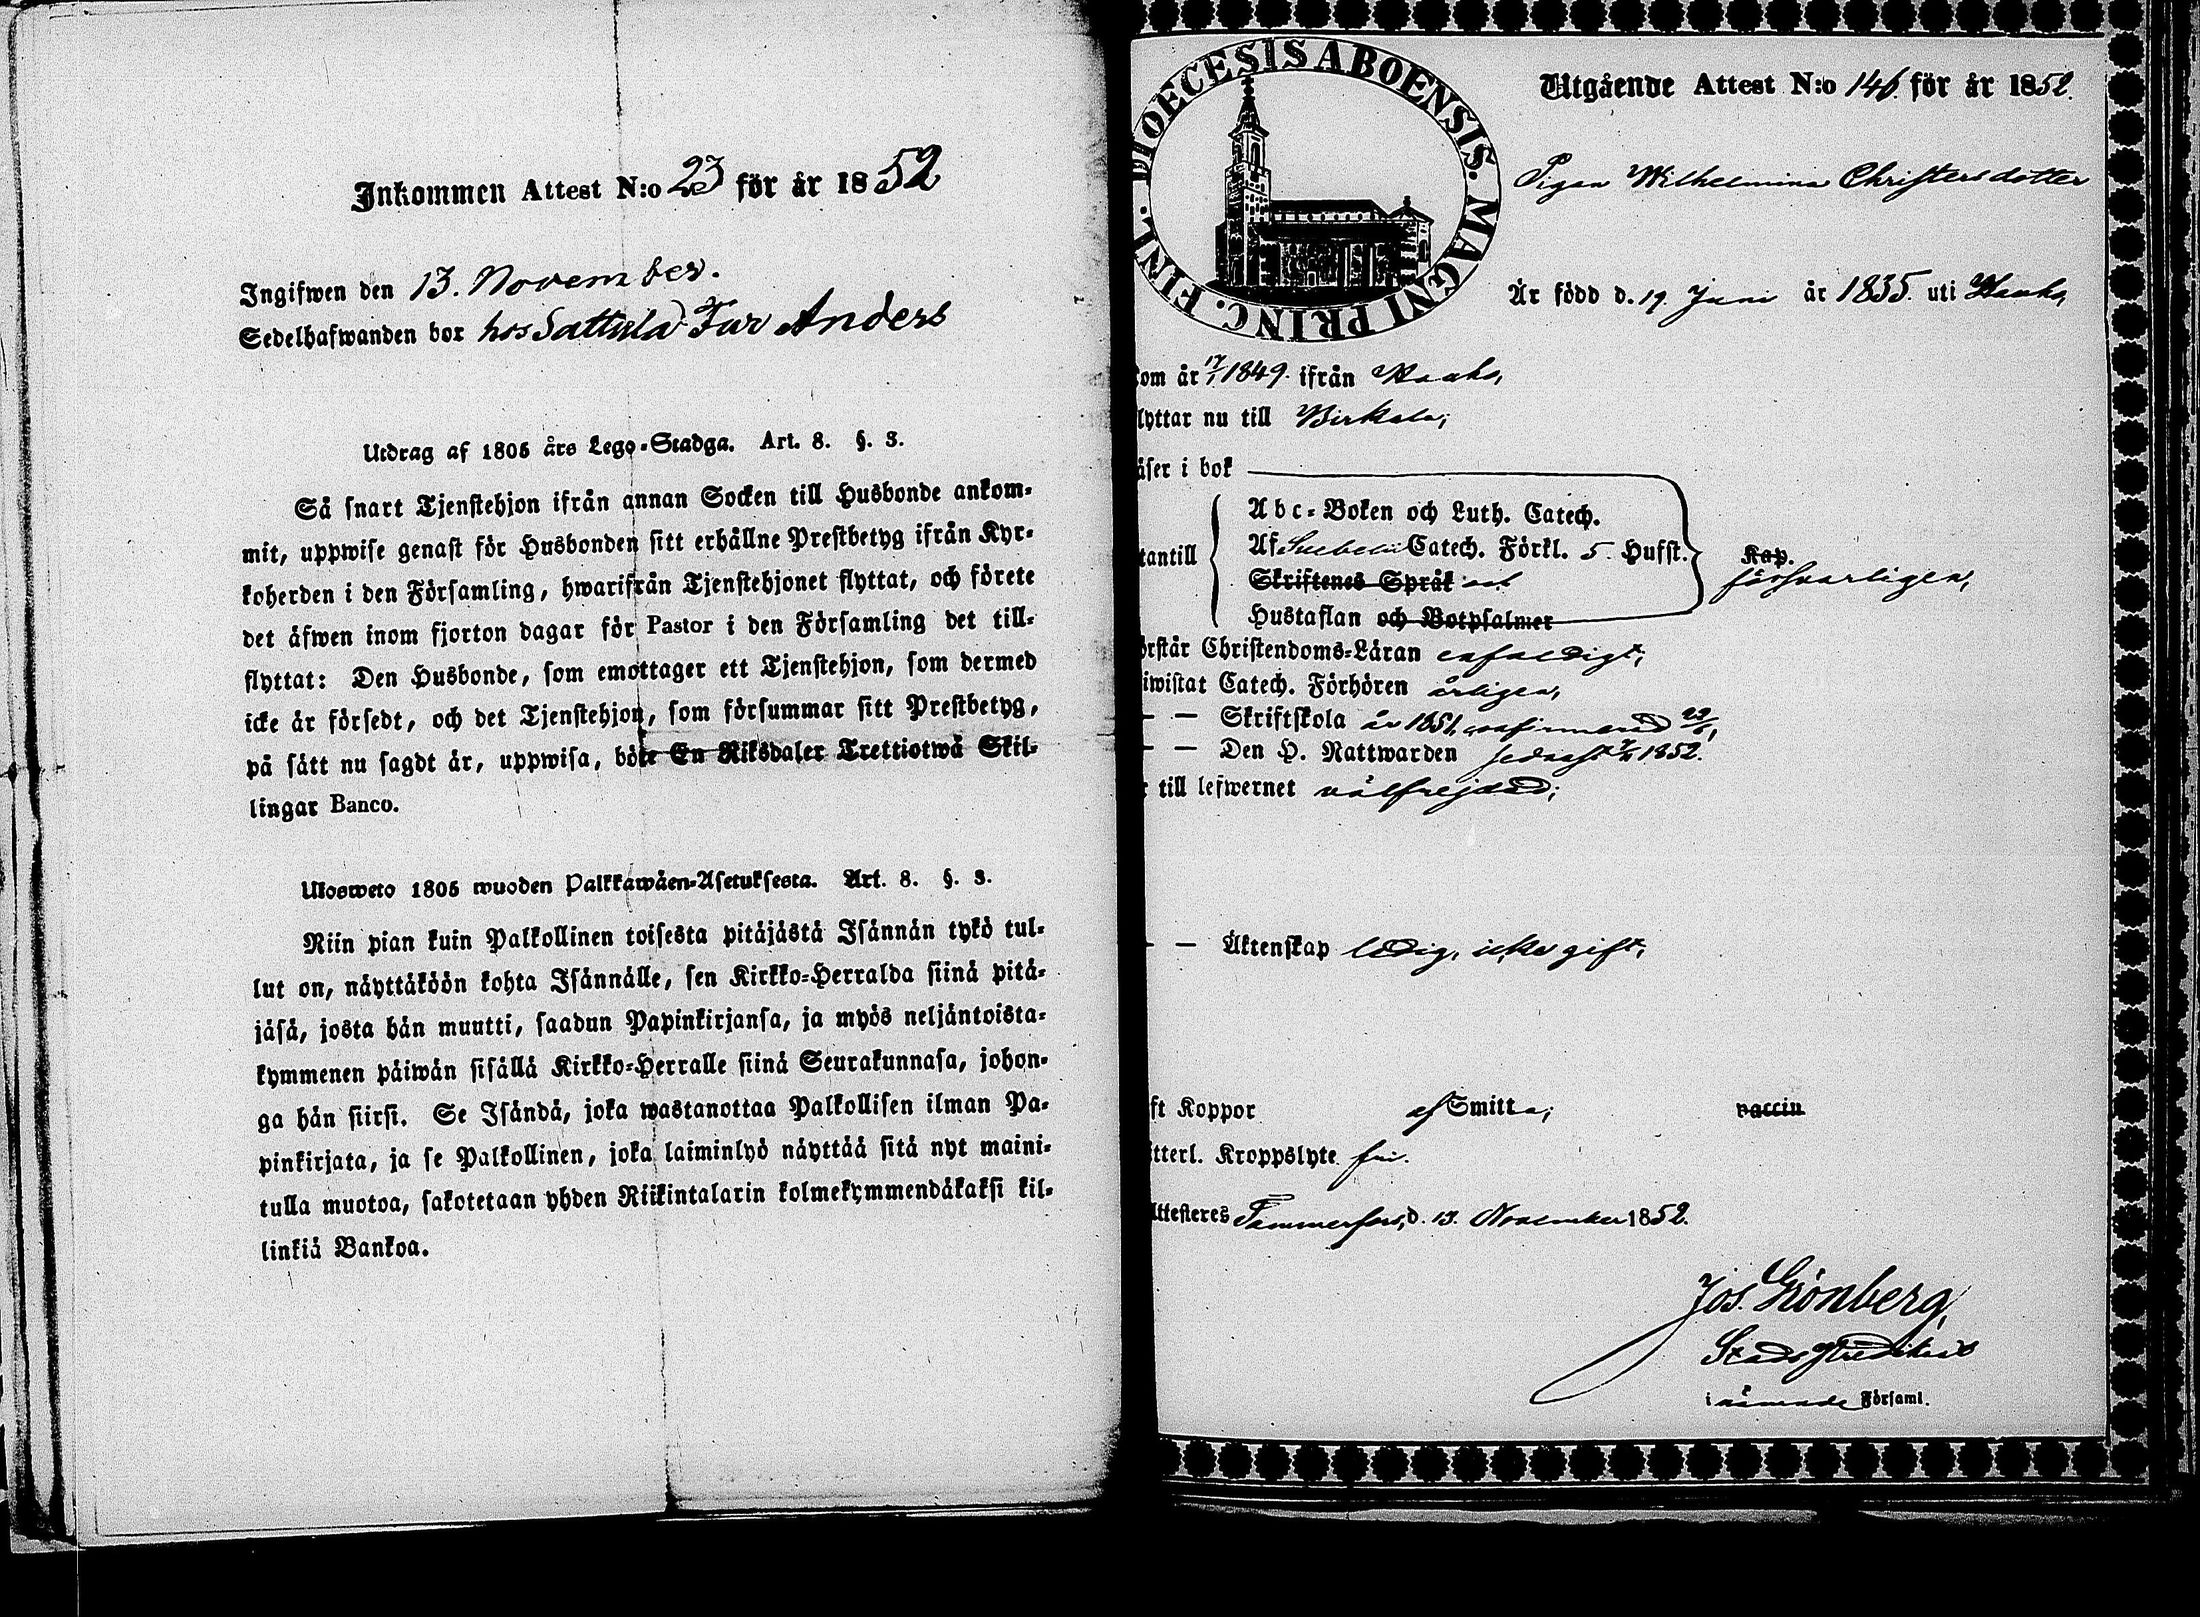 Inkommen Attest N:o 23 för år 1852
Ingifwen den 13. November.
Sedelhafwanden bor hos Sattula Anders
Utdrag af 1805 års Lego-Stadga. Art. 8. §. 3.
Så snart Tjenstehjon ifrån annan Socken till Husbonde ankom-
mit, uppwise genast för Husbonden sitt erhållne Prestbetyg ifrån Kyr-
koherden i den Församling, hwarifrån Tjenstehjonet flyttat, och förete
det äfwen inom fjorton dagar för Pastor i den Församling det till-
flyttat: Den Husbonde, som emottager ett Tjenstehjon, som dermed
icke är försedt, och det Tjenstehjon, som försummar sitt Prestbetyg,
på sätt nu sagdt är, uppwisa, böte En Riksdaler Trettiotwå Skil-
lingar Banco.
Ulosweto 1805 wuoden Palkkawäen-Asetuksesta. Art. 8. §. 3.
Niin pian kuin Palkollinen toisesta pitäjästä Isännän tykö tul-
lut on, näyttäköön kohta Isännälle, sen Kirkko-Herralda siinä pitä-
jäsä, josta hän muutti, saadun Papinkirjansa, ja myös neljäntoista-
kymmenen päiwän sisällä Kirkko-Herralle siinä Seurakunnasa, johon-
ga hän siirsi. Se Isändä, joka wastanottaa Palkollisen ilman Pa-
pinkirjata, ja se Palkollinen, joka laiminlyö näyttää sitä nyt maini-
tulla muotoa, sakotetaan yhden Riikintalarin kolmekymmendäkaksi kil-
linkiä Bankoa.
DIOECESIS ABOENSIS. MAGNI PRINC. FINL.
Utgående Attest N:o 146. för år 1852.
Pigan Wilhelmina Christersdotter
Är född d. 19. Juni år 1835. uti
kom år 17/1 1849. ifrån
lyttar nu till Birkala;
äser i bok
Abc-Boken och Luth. Catech.
Af Svebelii Catech. Förkl. 5. Hufst. Kap.
tantill
försvarligen,
Skriftenes Språk och
Hustaflan och Botpsalmer
örstår Christendoms-Läran enfaldigt,
iwistat Catech. Förhören årligen,
— — Skriftskola år 1851, confirmerad
— — Den H. Nattwarden sednast 1852.
r till lefwernet välfrejdad;
— — Äktenskap ledig, icke gift,
ft Koppor af Smitta; vaccin
tterl. Kroppslyte fri.
Attesteres Tammerfors, d. 13. November 1852.
Jos. Grönberg,
Stadspredikant
i nämnde Församl.